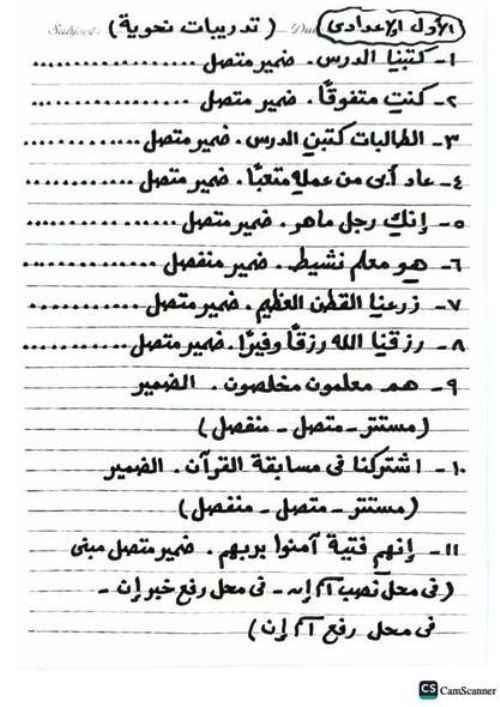 الأول الإعدادى ( تدريبات نحوية )
١- كتبنا الدرس . ضمير متصل ..................
٢- كنت متفوقًا . ضمير متصل ..................
٣- الطالبات كتبن الدرس . ضمير متصل .............
٤- عاد أبى من عمله متعبًا . ضمير متصل ............
٥- إنك رجل ماهو . ضمير متصل .................
٦- هو معلم نشيط . ضمير منفصل ................
٧- زرعنا القطن العظيم . ضمير متصل ............
٨- رزقنا الله رزقًا وفيرًا . ضمير متصل ............
٩- هم معلمون مخلصون . الضمير
(مستتر - متصل - منفصل)
١٠- اشتركنا فى مسابقة القرآن . الضمير
(مستتر - متصل - منفصل)
١١- إنهم فتية آمنوا بربهم . ضمير متصل مبنى
(فى محل نصب اسم إن - فى محل رفع خبر إن -
فى محل رفع اسم إن)
CS CamScanner